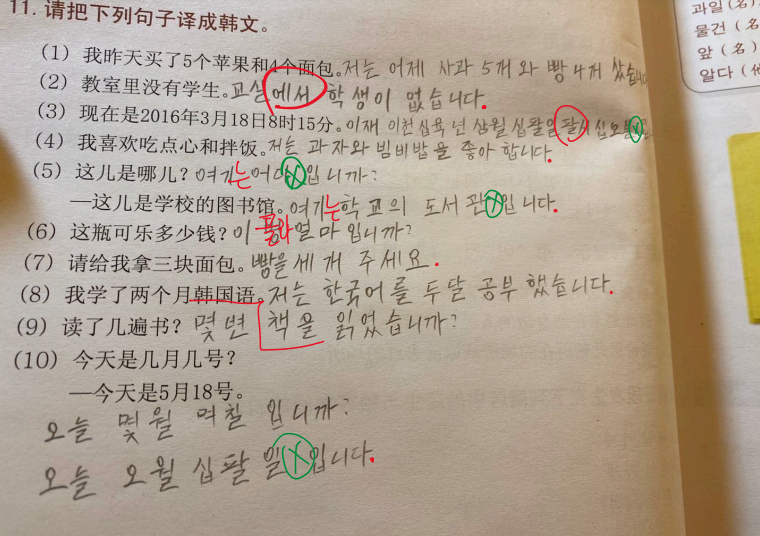 11. 请把下列句子译成韩文。
(1) 我昨天买了5个苹果和4个面包。저는 어제 사과 5개 와 빵 4개 샀습니다
(2) 教室里没有学生。교실에서 학생이 없습니다.
(3) 现在是2016年3月18日8时15分。이재 이천십육 년 삼월 십팔일 팔시 십오분
(4) 我喜欢吃点心和拌饭。저는 과자와 빔비밥을 좋아 합니다.
(5) 这儿是哪儿?여기는 어디입니까?
—这儿是学校的图书馆。여기는 학교의 도서관입니다.
(6) 这瓶可乐多少钱?이 얼마입니까?
(7) 请给我拿三块面包。빵을 세 개 주세요.
(8) 我学了两个月韩国语。저는 한국어를 두달 공부 했습니다.
(9) 读了几遍书?몇 변 책을 읽었습니까?
(10) 今天是几月几号?
—今天是5月18号。
오늘 몇월 며칠 입니까?
오늘 오월 십팔 일입니다.
过 (名)
物건 (名)